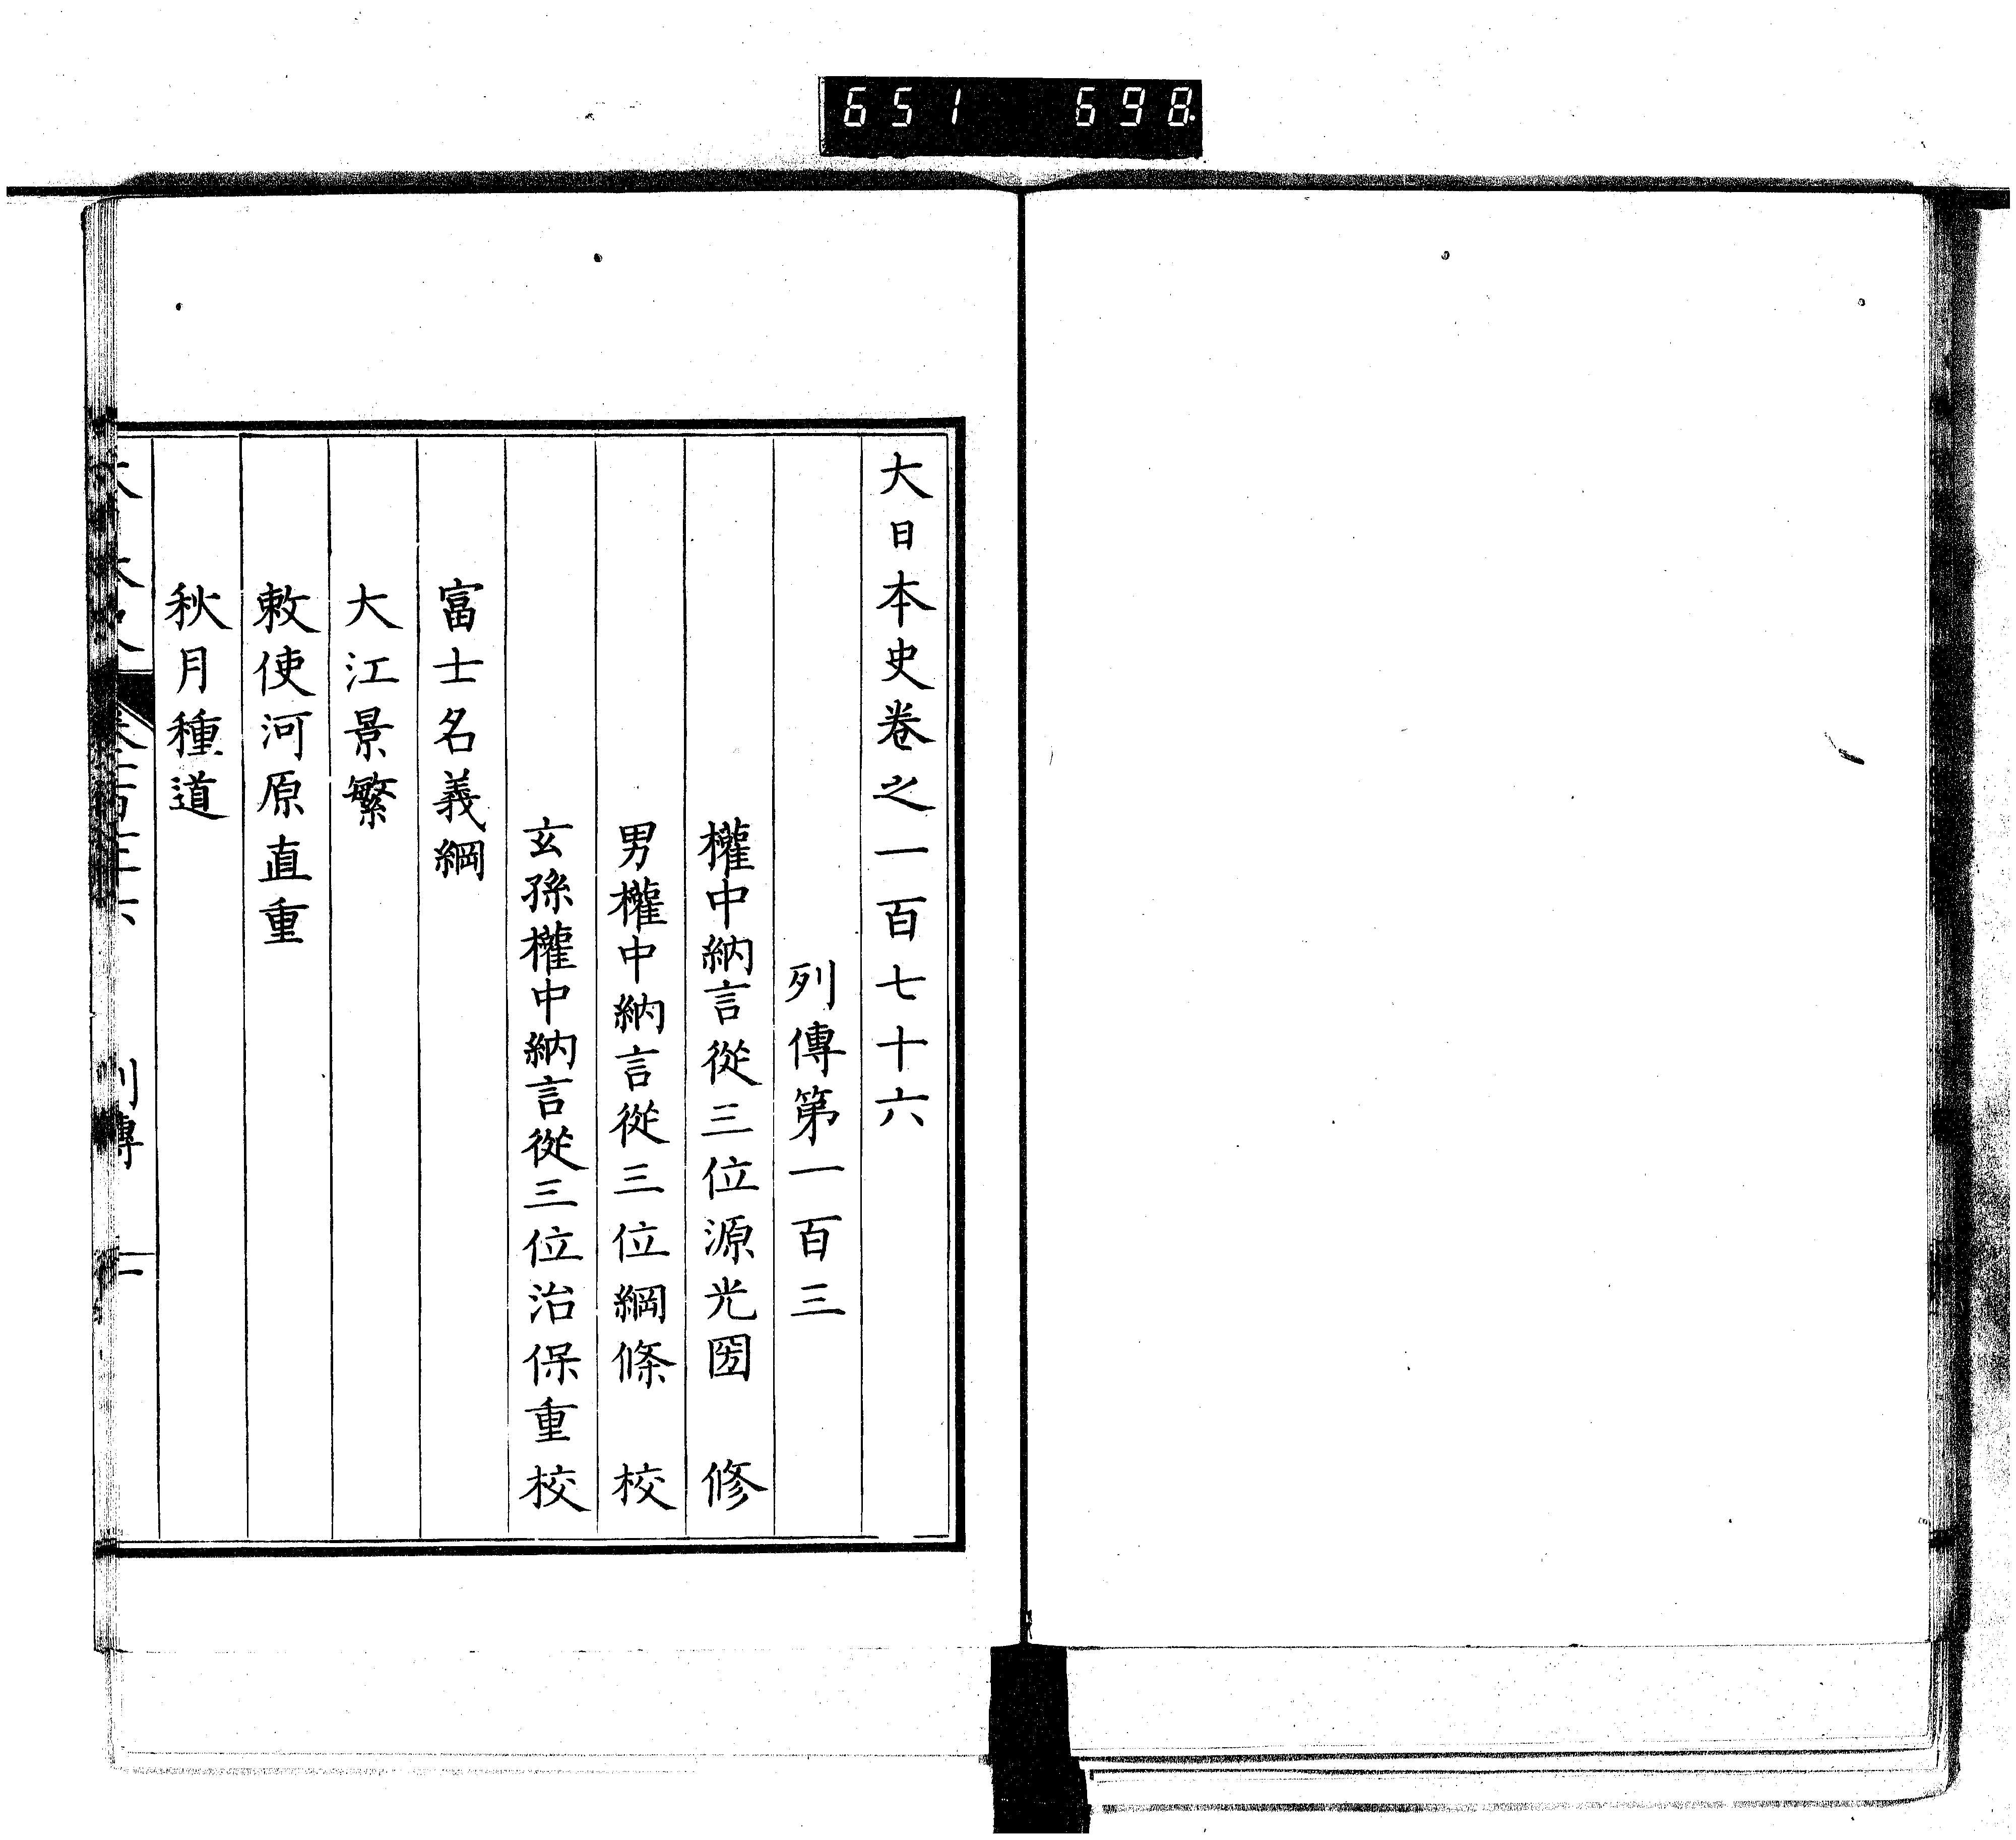 651 698
大日本史卷之一百七十六
列傳第一百三
權中納言從三位源光圀 修
男權中納言從三位綱條 校
玄孫權中納言從三位治保重校
富士名義綱
大江景繁
敕使河原直重
秋月種道
列傳